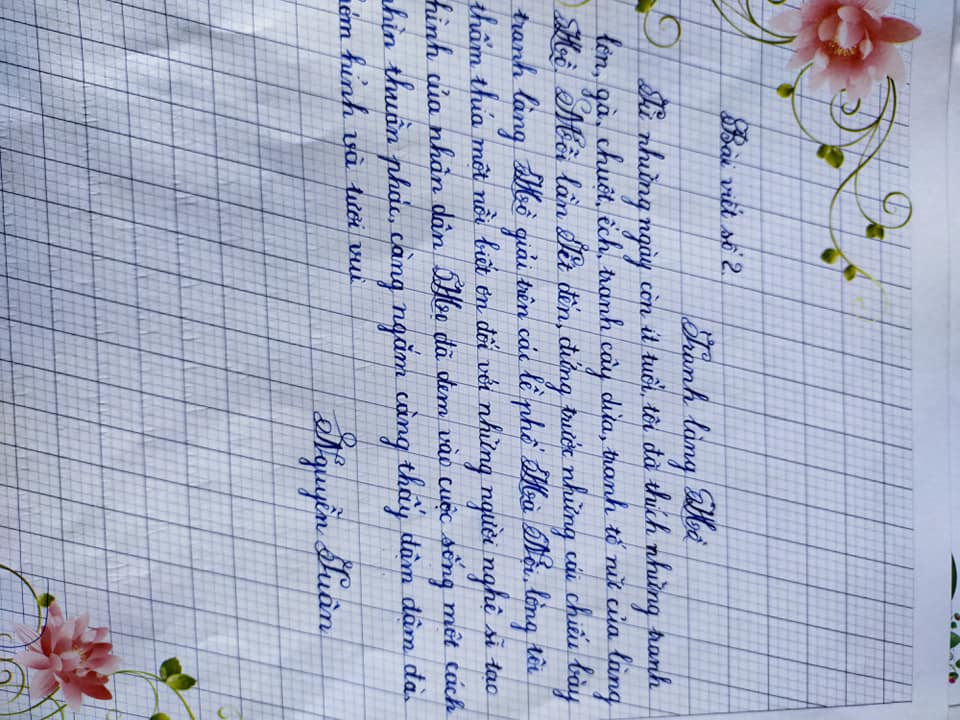 Bài viết số 2
Tranh làng Hồ
Từ những ngày còn ít tuổi, tôi đã thích những tranh
lợn, gà, chuột, ếch, tranh cây dừa, tranh tố nữ của làng
Hồ. Mỗi lần Tết đến, đứng trước những cái chiếu bày
tranh làng Hồ giải trên các lề phố Hà Nội, lòng tôi
thấm thía một nỗi biết ơn đối với những người nghệ sĩ tạo
hình của nhân dân. Họ đã đem vào cuộc sống một cách
nhìn thuần phác, càng ngắm càng thấy đậm đậm đà,
hóm hỉnh và tươi vui
Nguyễn Tuân